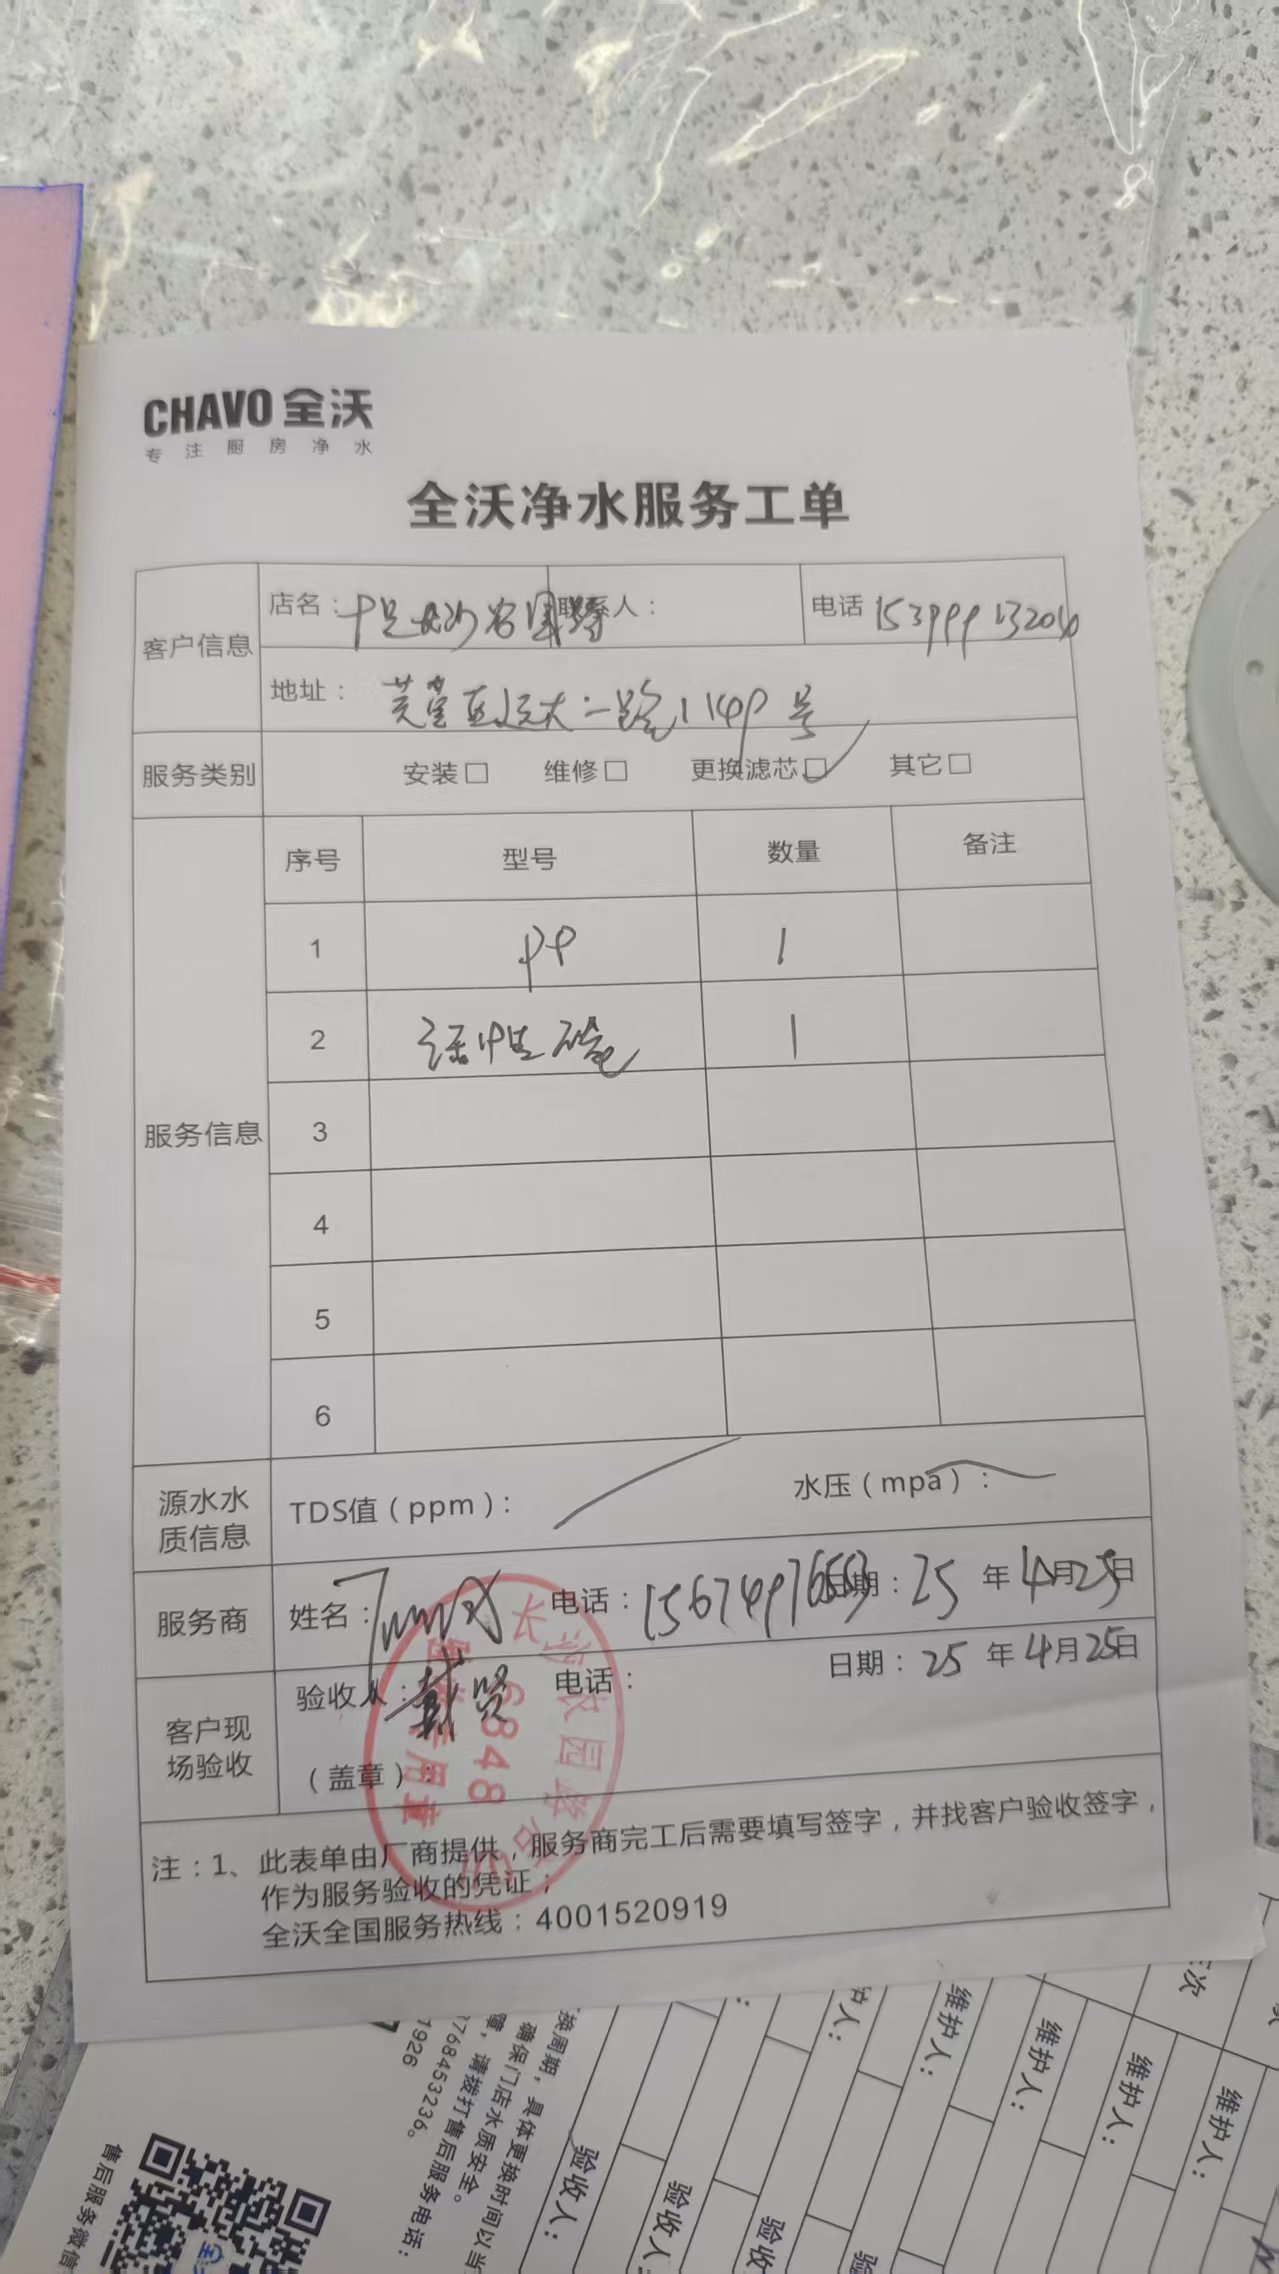 CHAVO 全沃
专注厨房净水
全沃净水服务工单
客户信息
店名： 十足长沙农园路 联系人： 电话 15399913204
地址： 芙蓉区远大二路1149号
服务类别 安装□ 维修□ 更换滤芯□✓ 其它□
服务信息
序号 型号 数量 备注
1 PP 1
2 活性碳 1
3
4
5
6
源水水质信息 TDS值（ppm）： 水压（mpa）：
服务商 姓名： 电话： 日期：25 年 4月25日
客户现场验收 验收人： 戴贤 电话： 日期：25 年 4月25日
（盖章）：
长沙农园路店
6848
专用章
注：1、此表单由厂商提供，服务商完工后需要填写签字，并找客户验收签字，
作为服务验收的凭证；
全沃全国服务热线：4001520919
换周期，具体更换时间以当
确保门店水质安全。
请拨打售后服务电话：
768453236。
1926
售后服务微信
验收人：
验收人：
验收
验
维护人：
维护人：
维护人：
维护人：
维护人：
次